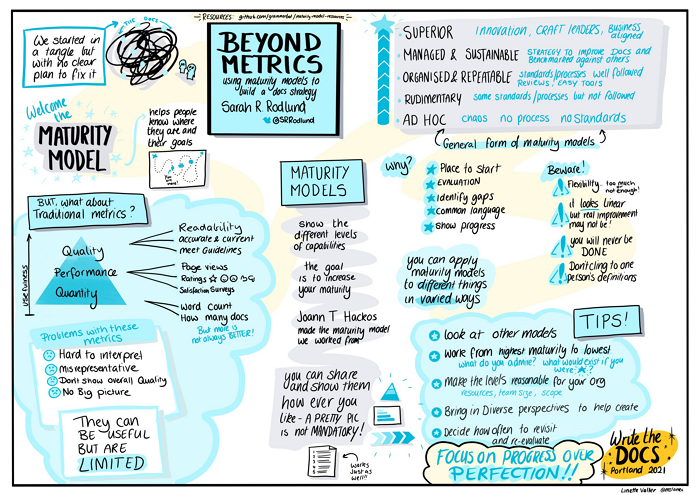 RESOURCES: github.com/grammarbot/maturity-model-resources
We started in
a tangle but
with no clear
plan to fix it
THE DOCS
BEYOND
METRICS
using maturity models to
build a docs strategy
Sarah R. Rodlund
@SRRodlund
SUPERIOR
Innovation, CRAFT LEADERS, Business
aligned
MANAGED & SUSTAINABLE
STRATEGY TO IMPROVE DOCS and
Benchmarked against others
ORGANISED & REPEATABLE
standards/processes well followed
REVIEWS, EASY TOOLS
RUDIMENTARY
some standards/processes but not followed
AD HOC
chaos no process no standards
General form of maturity models
Welcome
the
MATURITY
MODEL
helps people
know where
they are and
their goals
BUT, what about
Traditional metrics?
Usefulness
Quality
Performance
Quantity
Readability
accurate & current
meet Guidelines
Page views
Ratings
Satisfaction Surveys
Word count
How many docs
But more is
not always BETTER!
Problems with these
metrics
Hard to interpret
misrepresentative
Dont show overall Quality
No Big picture
They can
BE USEFUL
BUT ARE
LIMITED
MATURITY
MODELS
show the
different levels
of capabilities
the goal
is to increase
your maturity
Joann T Hackos
made the maturity model
we worked from
you can share
and show them
how ever you
like - A PRETTY PIC
is not MANDATORY!
works
just as
well!!
why?
Place to start
EVALUATION
Identify gaps
Common language
Show progress
Beware!
Flexibility. too much
not enough!
it looks linear
but real improvement
may not be!
you will never be
DONE
Dont cling to one
person's definitions
you can apply
maturity models
to different things
in varied ways
TIPS!
LOOK at other models
Work from highest maturity to lowest
what do you admire? what would exist if you
were ?
Make the levels reasonable for your org
resources, team size, scope
Bring in Diverse perspectives to help create
Decide how often to revisit
and re-evaluate
FOCUS ON PROGRESS OVER
PERFECTION!!
Write the
DOCS
Portland 2021